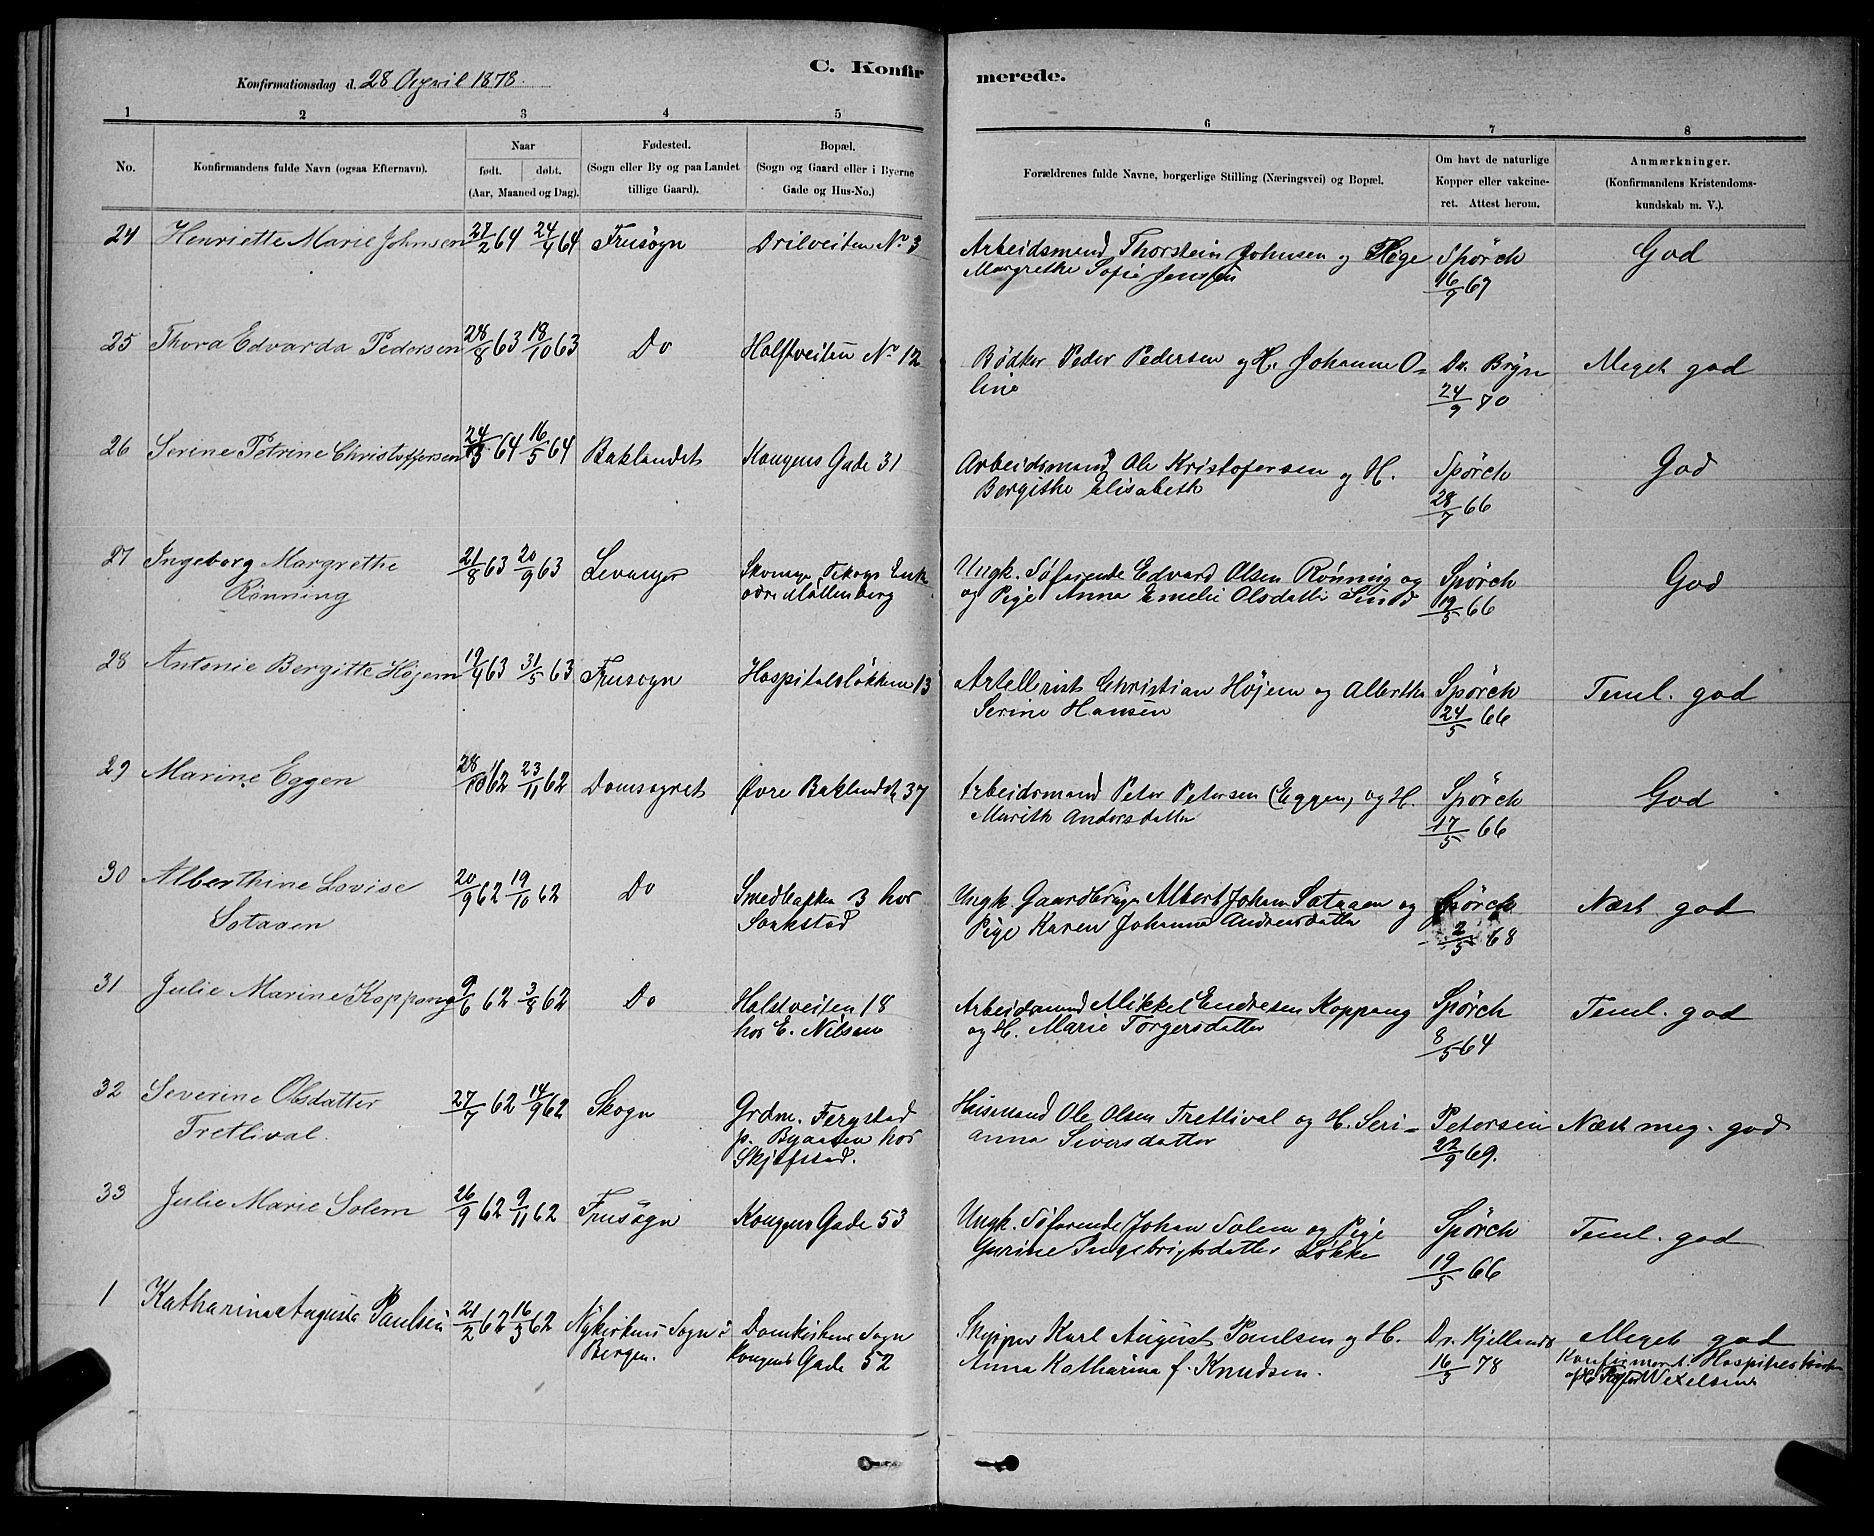 Konfirmationsdag d. 28 April 1878.
C. Konfirmerede.
1 2 3 4 5 6 7 8
No.
Konfirmandens fulde Navn (ogsaa Efternavn).
Naar
født. døbt.
(Aar, Maaned og Dag).
Fødested.
(Sogn eller By og paa Landet
tillige Gaard).
Bopæl.
(Sogn og Gaard eller i Byerne
Gade og Hus-No.)
Forældrenes fulde Navne, borgerlige Stilling (Næringsvei) og Bopæl.
Om havt de naturlige
Kopper eller vakcine-
ret. Attest herom.
Anmærkninger.
(Konfirmandens Kristendoms-
kundskab m. V.).
24 Henriette Marie Johnsen 27/2 64 24/4 64 Frusogn Drilveiten No 3 Arbeidsmand Thorstein Johnsen og Pige Spörch God
Margrethe Sofie Jensen 16/9 67
25 Thora Edvarda Pedersen 28/8 63 18/10 63 Do Holstveiten No 12 Bödker Peder Pedersen og H. Johanne O- Dr. Bryn Meget god
line 24/9 70
26 Serine Petrine Christoffersen 24/3 64 16/5 64 Baklandet Kongens Gade 31 Arbeidsmand Ole Kristofersen og H. Spörch God
Bergithe Elisabeth 28/7 66
27 Ingeborg Margrethe 21/8 63 20/9 63 Levanger Ungk. Söfarende Edvard Olsen Rönning og Spörch God
Rönning övre Möllenberg og Pige Anna Emelie Olsdatter 19/5 66
28 Antonie Bergitte Höjem 19/4 63 31/5 63 Frusogn Hospitalslökken 13 Artellerist Christian Höjem og Alberthe Spörch Teml. god
Serine Hansen 24/5 66
29 Marine Eggen 28/10 62 23/11 62 Domsognet Øvre Baklandet 37 Arbeidsmand Peter Petersen (Eggen) og H. Spörch God
Marith Andersdatter 17/5 66
30 Alberthine Lovise 20/9 62 19/10 62 Do Smedbakken 3 hos Ungk. Gaardbruger Albert Johan Sataaen og Spörch Næst god
Sataaen Saakstad Pige Karen Johanna Andreasdatter 2/5 68
31 Julie Marine Koppang 9/6 62 3/8 62 Do Holstveiten 18 Arbeidsmand Mikkel Endresen Koppang Spörch Teml. god
hos E. Nilsen og H. Marie Torgersdatter 8/5 64
32 Severine Olsdatter 27/7 62 14/9 62 Skogn Grdm. Fergstad Husmand Ole Olsen Tretlival og H. Seri- Petersen Næst meg. god
Tretlival. p. Byaasen hos anna Siversdatter 22/9 69.
Skjefstad.
33 Julie Marie Solem 26/9 62 9/11 62 Frusogn Kongens Gade 53 Ungk. Söfarende Johan Solem og Pige Spörch Teml. god
Gurine Ingebrigtsdatter Løkke 19/5 66
1 Katharina Augusta Paulsen 21/2 62 16/3 62 Nykirkens Sogn i Domkirkens Sogn Skipper Karl August Paulsen og H. Dr. Kjelland Meget god
Bergen. Kongens Gade 52 Anna Katharina f. Knudsen. 16/3 78 Konfirmeret i Hospitalskirken
af Hr. Wexelsen